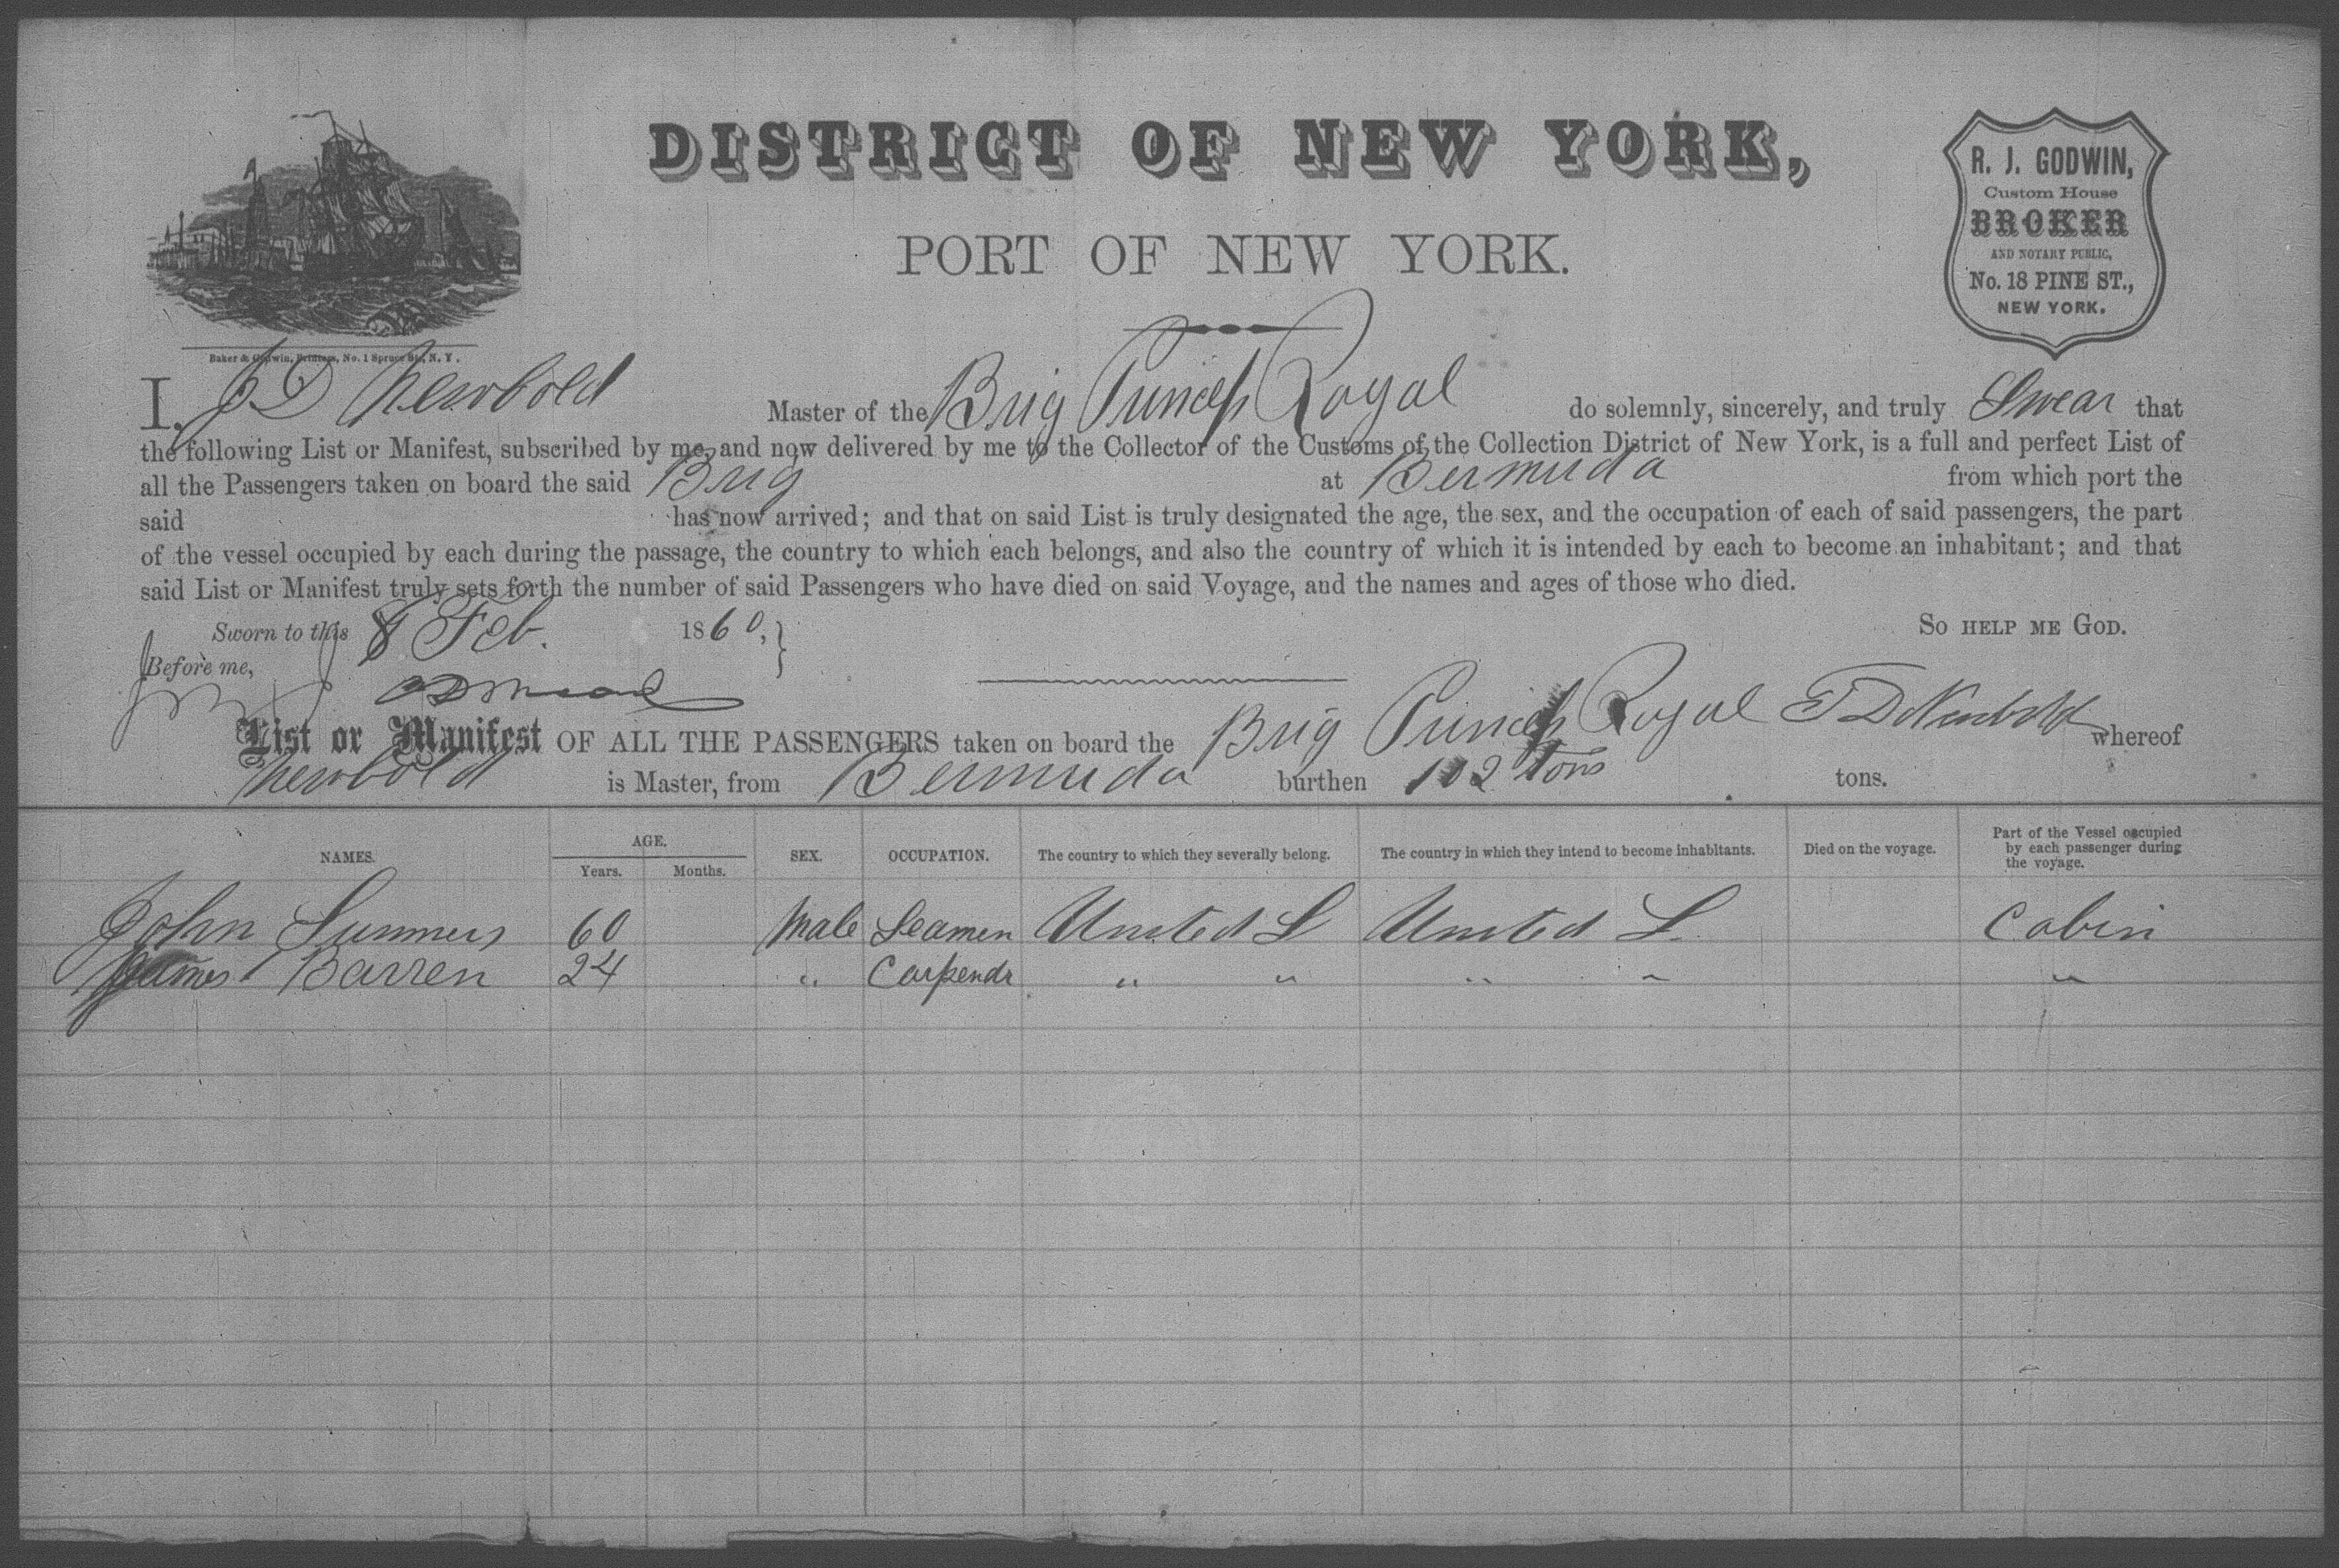 DISTRICT OF NEW YORK,
PORT OF NEW YORK.
R. J. GODWIN,
Custom House
BROKER
AND NOTARY PUBLIC,
No. 18 PINE ST.,
NEW YORK.
Baker & Godwin, Printers, No. 1 Spruce St., N. Y.
I, J D Newbold Master of the Brig Princess Royal do solemnly, sincerely, and truly Swear that
the following List or Manifest, subscribed by me, and now delivered by me to the Collector of the Customs of the Collection District of New York, is a full and perfect List of
all the Passengers taken on board the said Brig at Bermuda from which port the
said has now arrived; and that on said List is truly designated the age, the sex, and the occupation of each of said passengers, the part
of the vessel occupied by each during the passage, the country to which each belongs, and also the country of which it is intended by each to become an inhabitant; and that
said List or Manifest truly sets forth the number of said Passengers who have died on said Voyage, and the names and ages of those who died.
Sworn to this 8 Feb. 1860, } SO HELP ME GOD.
Before me,
List or Manifest OF ALL THE PASSENGERS taken on board the Brig Princess Royal J D Newbold whereof
Newbold is Master, from Bermuda burthen 102 tons tons.
NAMES. AGE. Years. Months. SEX. OCCUPATION. The country to which they severally belong. The country in which they intend to become inhabitants. Died on the voyage. Part of the Vessel occupied by each passenger during the voyage.
John Summers 60 Male Seamen United S United S. Cabin
James Barren 24 " Carpendr " " " " "